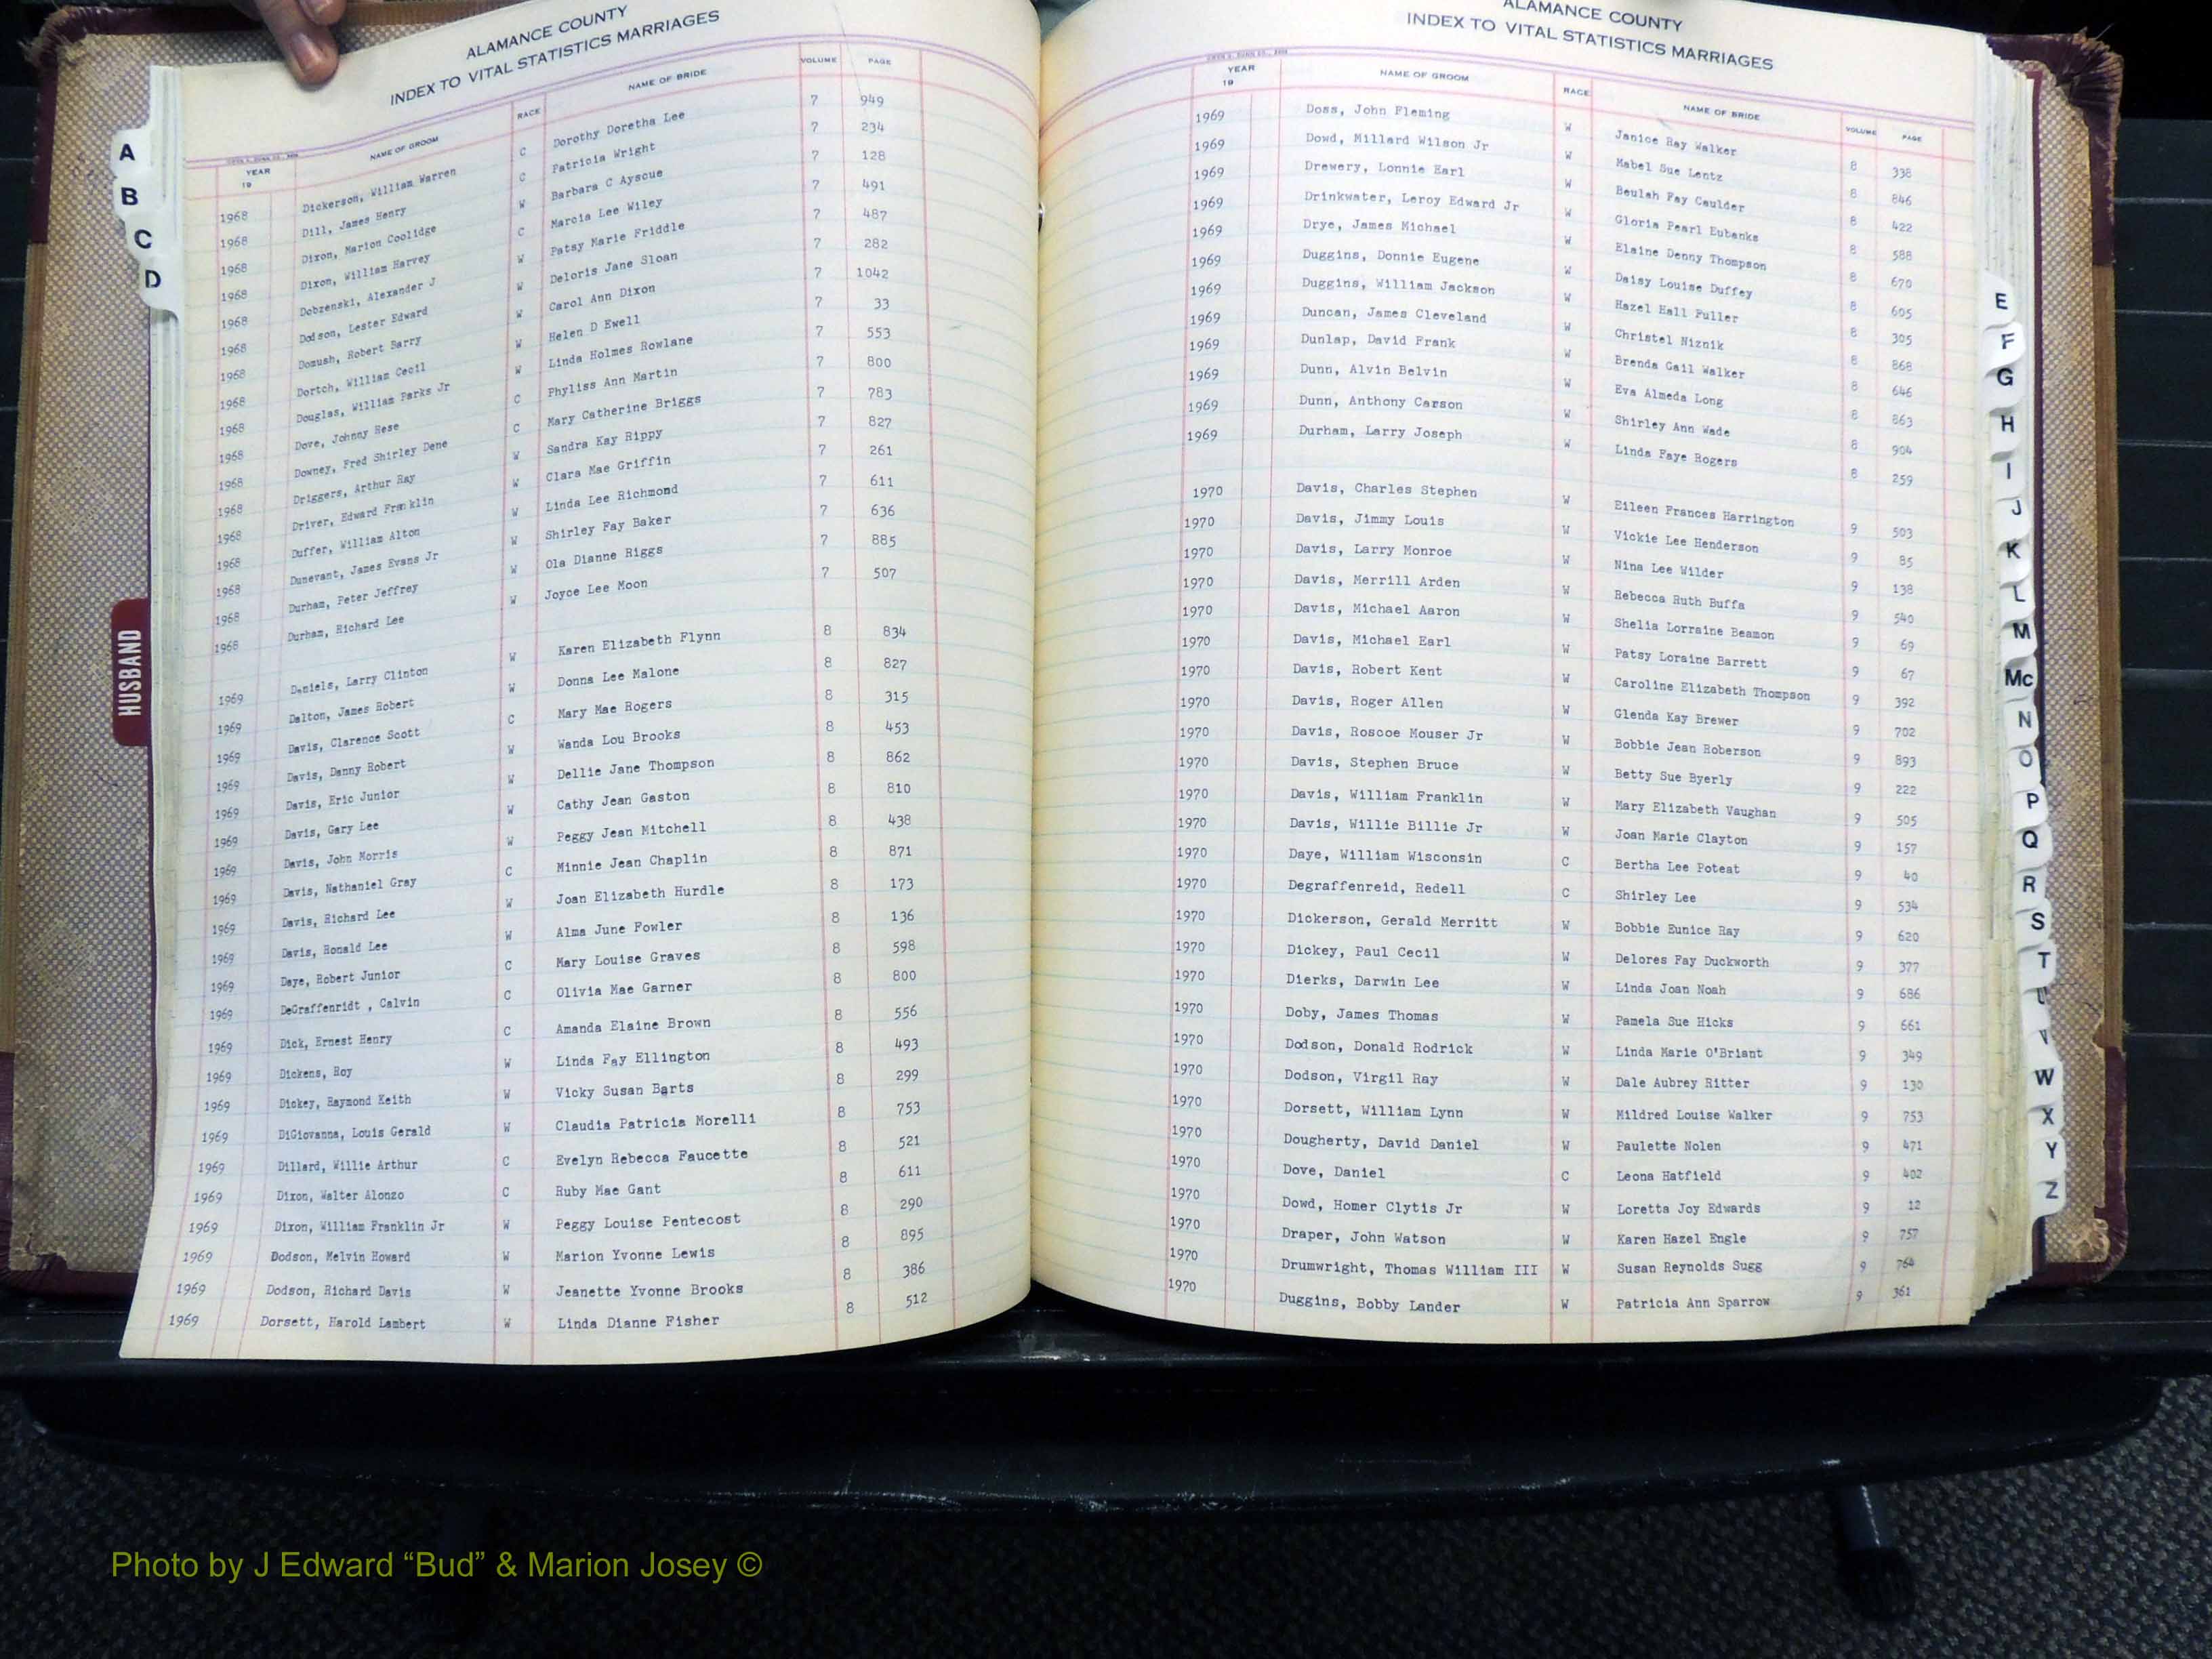 ALAMANCE COUNTY
INDEX TO VITAL STATISTICS MARRIAGES
YEAR 19 NAME OF GROOM RACE NAME OF BRIDE VOLUME PAGE
1968 Dickerson, William Warren C Dorothy Doretha Lee 7 949
1968 Dill, James Henry C Patricia Wright 7 234
1968 Dixon, Marion Coolidge W Barbara C Ayscue 7 128
1968 Dixon, William Harvey C Marcia Lee Wiley 7 491
1968 Dobzenski, Alexander J W Patsy Marie Friddle 7 487
1968 Dodson, Lester Edward W Deloris Jane Sloan 7 282
1968 Domush, Robert Barry W Carol Ann Dixon 7 1042
1968 Dortch, William Cecil W Helen D Ewell 7 33
1968 Douglas, William Parks Jr W Linda Holmes Rowlane 7 553
1968 Dove, Johnny Rese C Phyliss Ann Martin 7 800
1968 Downey, Fred Shirley Dene C Mary Catherine Briggs 7 783
1968 Driggers, Arthur Ray W Sandra Kay Rippy 7 827
1968 Driver, Edward Franklin W Clara Mae Griffin 7 261
1968 Duffer, William Alton W Linda Lee Richmond 7 611
1968 Dunevant, James Evans Jr W Shirley Fay Baker 7 636
1968 Durham, Peter Jeffrey W Ola Dianne Riggs 7 885
1968 Durham, Richard Lee W Joyce Lee Moon 7 507
1969 Daniels, Larry Clinton W Karen Elizabeth Flynn 8 834
1969 Dalton, James Robert W Donna Lee Malone 8 827
1969 Davis, Clarence Scott C Mary Mae Rogers 8 315
1969 Davis, Danny Robert W Wanda Lou Brooks 8 453
1969 Davis, Eric Junior W Dellie Jane Thompson 8 862
1969 Davis, Gary Lee W Cathy Jean Gaston 8 810
1969 Davis, John Morris W Peggy Jean Mitchell 8 438
1969 Davis, Nathaniel Gray C Minnie Jean Chaplin 8 871
1969 Davis, Richard Lee W Joan Elizabeth Hurdle 8 173
1969 Davis, Ronald Lee W Alma June Fowler 8 136
1969 Daye, Robert Junior C Mary Louise Graves 8 598
1969 DeGraffenridt , Calvin C Olivia Mae Garner 8 800
1969 Dick, Ernest Henry C Amanda Elaine Brown 8 556
1969 Dickens, Roy W Linda Fay Ellington 8 493
1969 Dickey, Raymond Keith W Vicky Susan Barts 8 299
1969 DiGiovanna, Louis Gerald W Claudia Patricia Morelli 8 753
1969 Dillard, Willie Arthur C Evelyn Rebecca Faucette 8 521
1969 Dixon, Walter Alonzo C Ruby Mae Gant 8 611
1969 Dixon, William Franklin Jr W Peggy Louise Pentecost 8 290
1969 Dodson, Melvin Howard W Marion Yvonne Lewis 8 895
1969 Dodson, Richard Davis W Jeanette Yvonne Brooks 8 386
1969 Dorsett, Harold Lambert W Linda Dianne Fisher 8 512
A
B
C
D
HUSBAND
ALAMANCE COUNTY
INDEX TO VITAL STATISTICS MARRIAGES
YEAR 19 NAME OF GROOM RACE NAME OF BRIDE VOLUME PAGE
1969 Doss, John Fleming W Janice Ray Walker 8 338
1969 Dowd, Millard Wilson Jr W Mabel Sue Lentz 8 846
1969 Drewery, Lonnie Earl W Beulah Fay Caulder 8 422
1969 Drinkwater, Leroy Edward Jr W Gloria Pearl Eubanks 8 588
1969 Drye, James Michael W Elaine Denny Thompson 8 670
1969 Duggins, Donnie Eugene W Daisy Louise Duffey 8 605
1969 Duggins, William Jackson W Hazel Hall Fuller 8 305
1969 Duncan, James Cleveland W Christel Niznik 8 868
1969 Dunlap, David Frank W Brenda Gail Walker 8 646
1969 Dunn, Alvin Belvin W Eva Almeda Long 8 863
1969 Dunn, Anthony Carson W Shirley Ann Wade 8 904
1969 Durham, Larry Joseph W Linda Faye Rogers 8 259
1970 Davis, Charles Stephen W Eileen Frances Harrington 9 503
1970 Davis, Jimmy Louis W Vickie Lee Henderson 9 85
1970 Davis, Larry Monroe W Nina Lee Wilder 9 138
1970 Davis, Merrill Arden W Rebecca Ruth Buffa 9 540
1970 Davis, Michael Aaron W Shelia Lorraine Beamon 9 69
1970 Davis, Michael Earl W Patsy Loraine Barrett 9 67
1970 Davis, Robert Kent W Caroline Elizabeth Thompson 9 392
1970 Davis, Roger Allen W Glenda Kay Brewer 9 702
1970 Davis, Roscoe Mouser Jr W Bobbie Jean Roberson 9 893
1970 Davis, Stephen Bruce W Betty Sue Byerly 9 222
1970 Davis, William Franklin W Mary Elizabeth Vaughan 9 505
1970 Davis, Willie Billie Jr W Joan Marie Clayton 9 157
1970 Daye, William Wisconsin C Bertha Lee Poteat 9 40
1970 Degraffenreid, Redell C Shirley Lee 9 534
1970 Dickerson, Gerald Merritt W Bobbie Eunice Ray 9 620
1970 Dickey, Paul Cecil W Delores Fay Duckworth 9 377
1970 Dierks, Darwin Lee W Linda Joan Noah 9 686
1970 Doby, James Thomas W Pamela Sue Hicks 9 661
1970 Dodson, Donald Rodrick W Linda Marie O'Briant 9 349
1970 Dodson, Virgil Ray W Dale Aubrey Ritter 9 130
1970 Dorsett, William Lynn W Mildred Louise Walker 9 753
1970 Dougherty, David Daniel W Paulette Nolen 9 471
1970 Dove, Daniel C Leona Hatfield 9 402
1970 Dowd, Homer Clytis Jr W Loretta Joy Edwards 9 12
1970 Draper, John Watson W Karen Hazel Engle 9 757
1970 Drumwright, Thomas William III W Susan Reynolds Sugg 9 764
1970 Duggins, Bobby Lander W Patricia Ann Sparrow 9 361
E
F
G
H
I
J
K
L
M
Mc
N
O
P
Q
R
S
T
U
V
W
X
Y
Z
Photo by J Edward “Bud” & Marion Josey ©